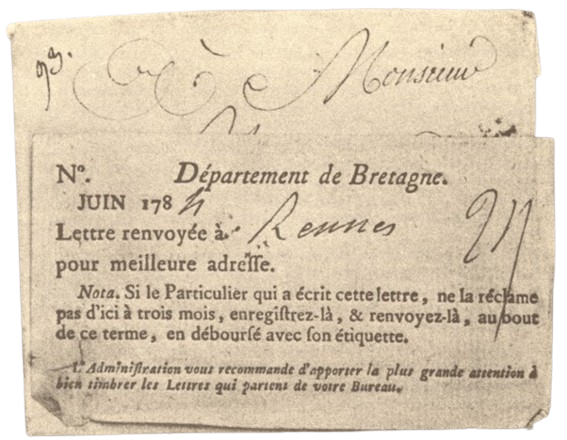 93.
A Monsieur
Nº. Département de Bretagne.
JUIN 1784
Lettre renvoyée à Rennes
pour meilleure adreſſe.
Nota. Si le Particulier qui a écrit cette lettre, ne la réclame
pas d'ici à trois mois, enregiſtrez-là, & renvoyez-là, au bout
de ce terme, en débourſé avec ſon étiquette.
L'Adminiſtration vous recommande d'apporter la plus grande attention à
bien timbrer les Lettres qui partent de votre Bureau.